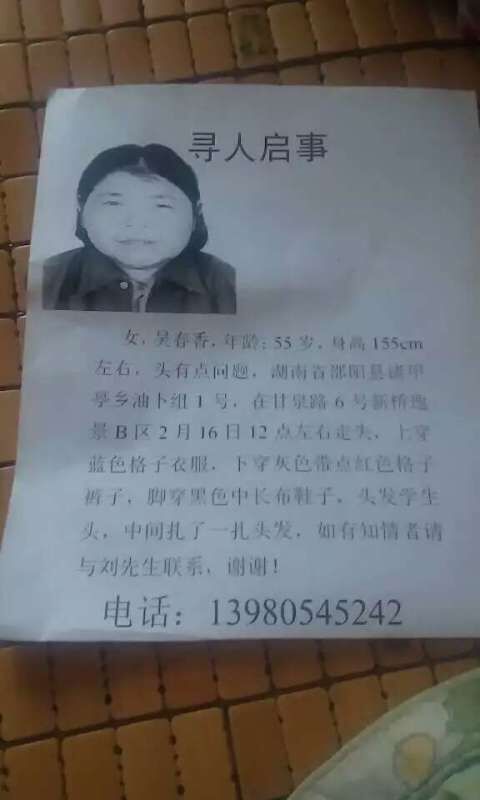 寻人启事
女，吴春香，年龄：55岁，身高155cm
左右，头有点问题，湖南省邵阳县诸甲
亭乡油卜组1号，在甘泉路6号新桥瑰
景B区2月16日12点左右走失，上穿
蓝色格子衣服，下穿灰色带点红色格子
裤子，脚穿黑色中长布鞋子，头发学生
头，中间扎了一扎头发，如有知情者请
与刘先生联系，谢谢！
电话：13980545242